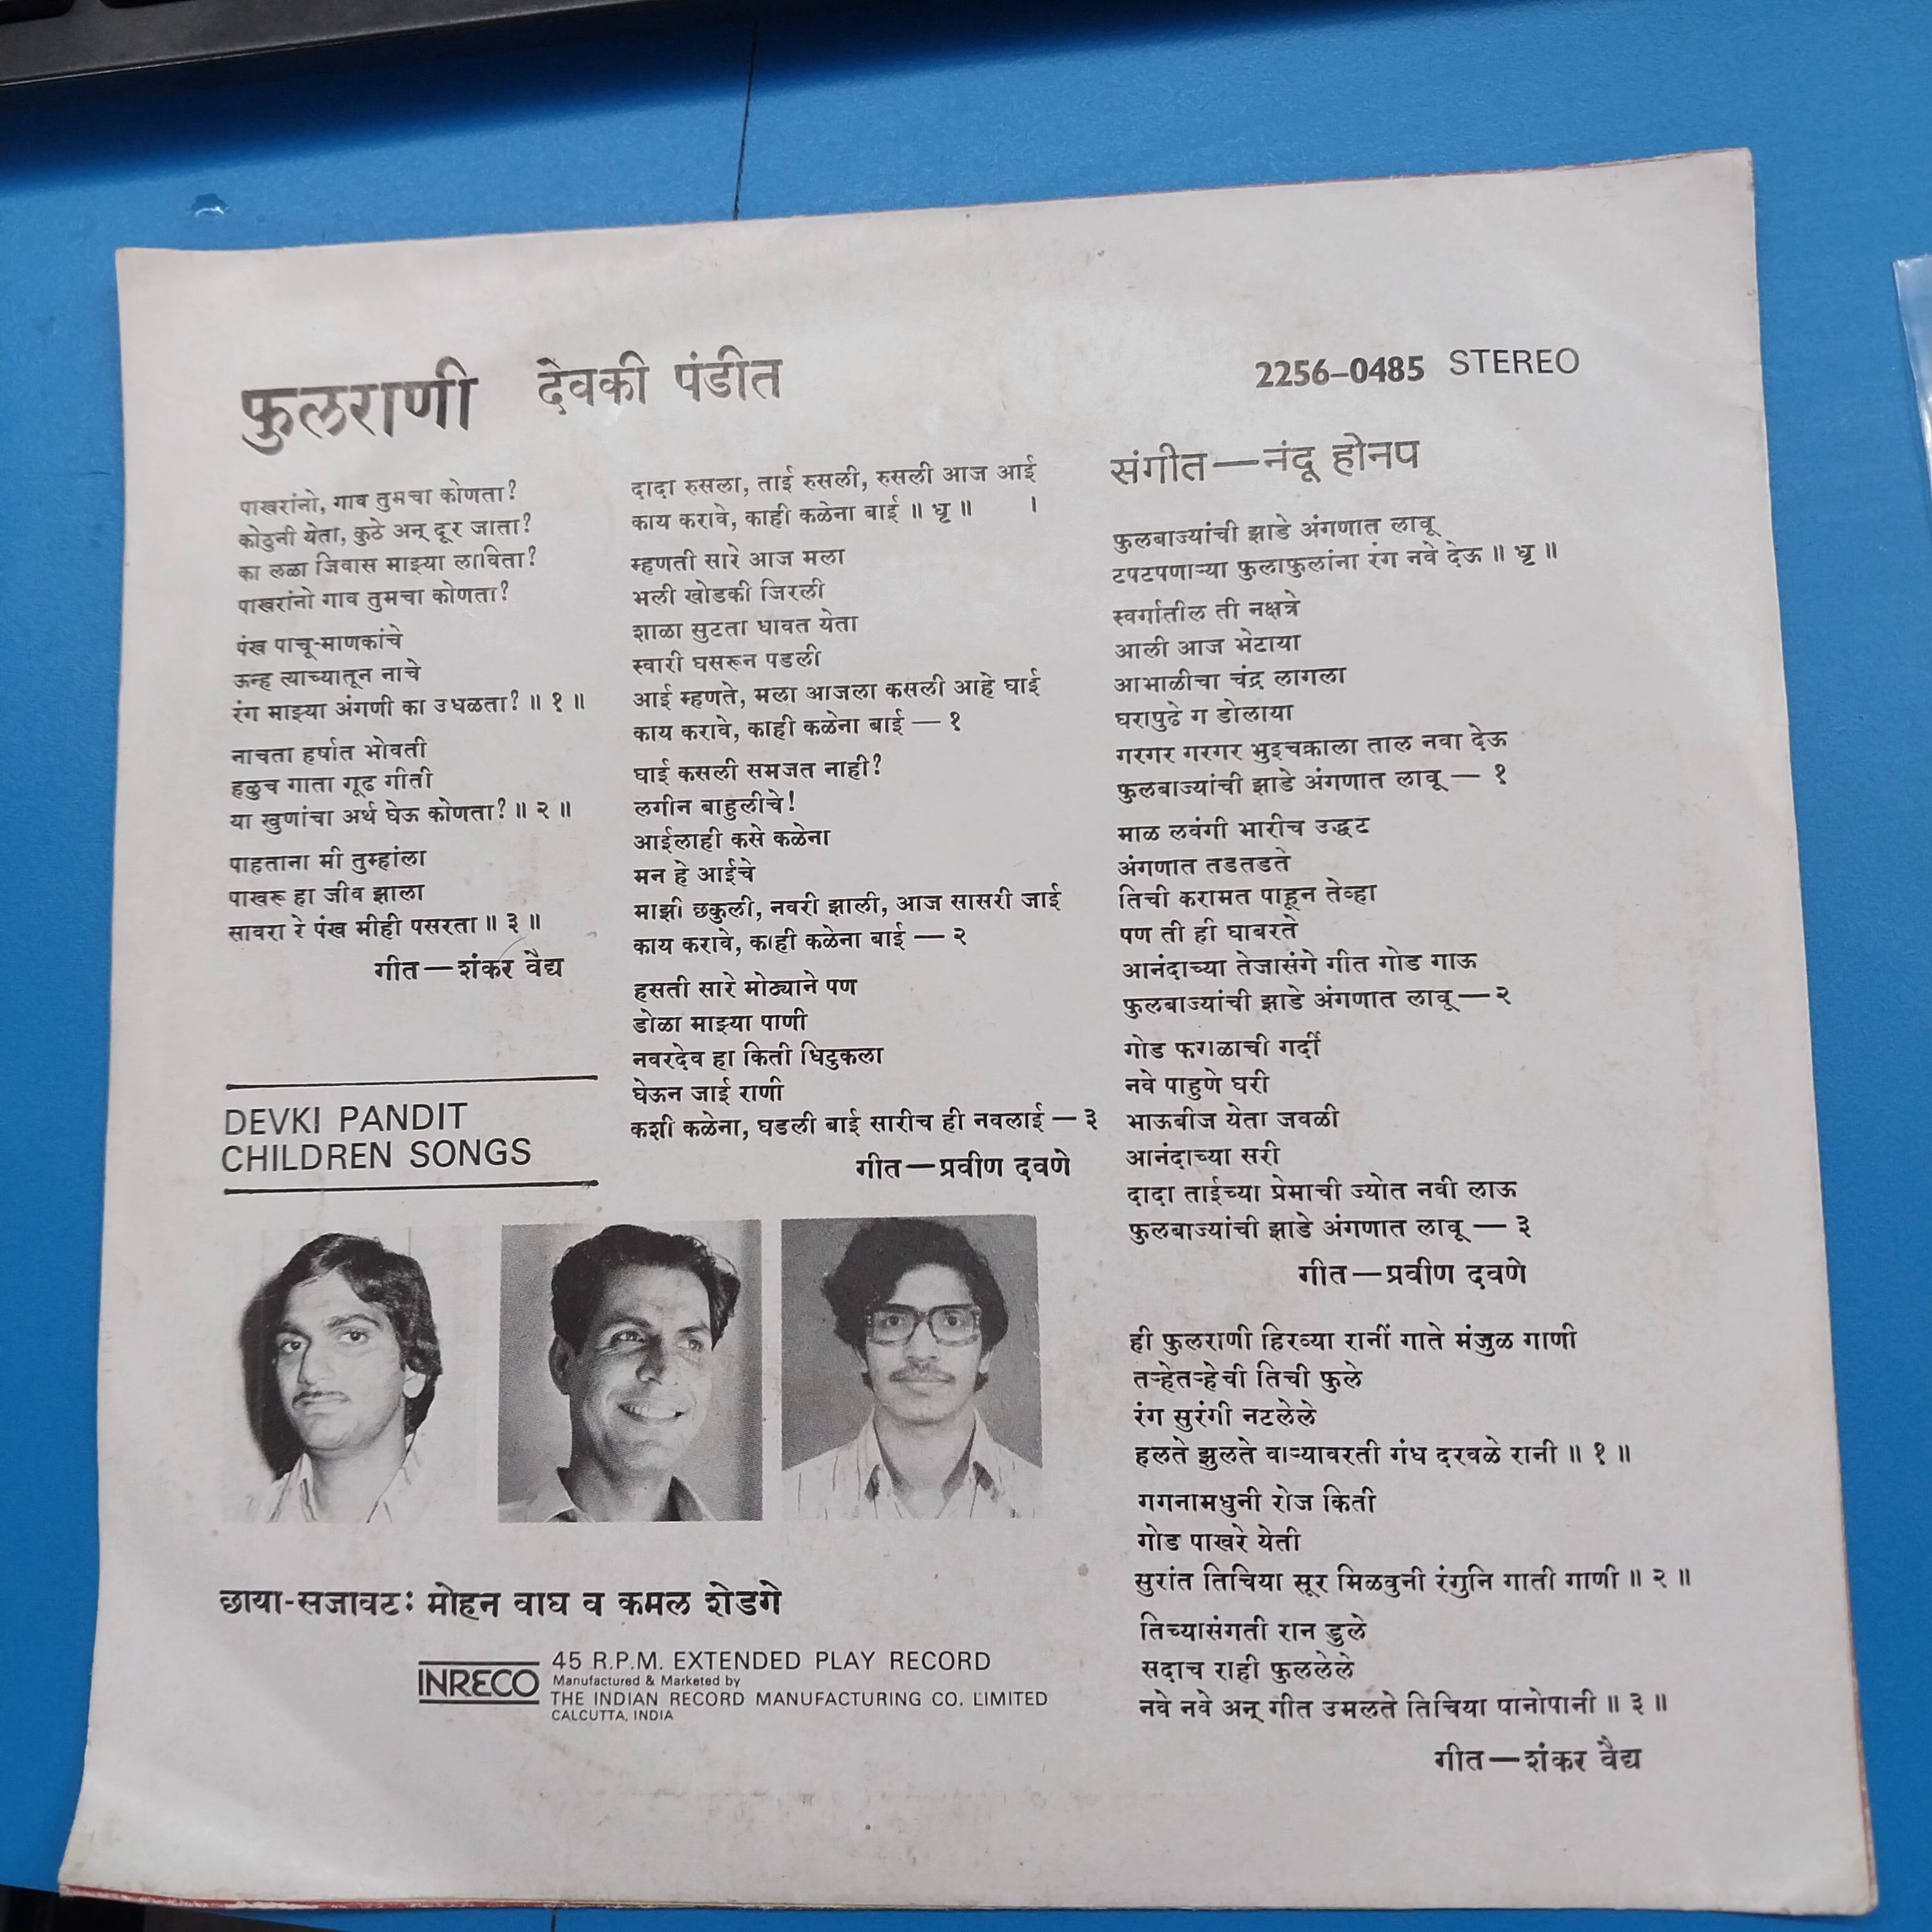 फुलराणी देवकी पंडीत
2256–0485 STEREO
पाखरांनो, गाव तुमचा कोणता?
कोठुनी येता, कुठे अन् दूर जाता?
का लळा जिवास माझ्या लाविता?
पाखरांनो गाव तुमचा कोणता?
पंख पाचू-माणकांचे
ऊन्ह त्याच्यातून नाचे
रंग माझ्या अंगणी का उधळता? ॥ १ ॥
नाचता हर्षात भोवती
हळुच गाता गूढ गीती
या खुणांचा अर्थ घेऊ कोणता? ॥ २ ॥
पाहताना मी तुम्हांला
पाखरू हा जीव झाला
सावरा रे पंख मीही पसरता ॥ ३ ॥
गीत — शंकर वैद्य
DEVKI PANDIT
CHILDREN SONGS
दादा रुसला, ताई रुसली, रुसली आज आई
काय करावे, काही कळेना बाई ॥ धृ ॥ ।
म्हणती सारे आज मला
भली खोडकी जिरली
शाळा सुटता धावत येता
स्वारी घसरून पडली
आई म्हणते, मला आजला कसली आहे घाई
काय करावे, काही कळेना बाई — १
घाई कसली समजत नाही?
लगीन बाहुलीचे!
आईलाही कसे कळेना
मन हे आईचे
माझी छकुली, नवरी झाली, आज सासरी जाई
काय करावे, काही कळेना बाई — २
हसती सारे मोठ्याने पण
डोळा माझ्या पाणी
नवरदेव हा किती धिटुकला
घेऊन जाई राणी
कशी कळेना, घडली बाई सारीच ही नवलाई — ३
गीत — प्रवीण दवणे
संगीत — नंदू होनप
फुलबाज्यांची झाडे अंगणात लावू
टपटपणाऱ्या फुलाफुलांना रंग नवे देऊ ॥ धृ ॥
स्वर्गातील ती नक्षत्रे
आली आज भेटाया
आभाळीचा चंद्र लागला
घरापुढे ग डोलाया
गरगर गरगर भुइचक्राला ताल नवा देऊ
फुलबाज्यांची झाडे अंगणात लावू — १
माळ लवंगी भारीच उद्धट
अंगणात तडतडते
तिची करामत पाहून तेव्हा
पण ती ही घाबरते
आनंदाच्या तेजासंगे गीत गोड गाऊ
फुलबाज्यांची झाडे अंगणात लावू — २
गोड फराळाची गर्दी
नवे पाहुणे घरी
भाऊबीज येता जवळी
आनंदाच्या सरी
दादा ताईच्या प्रेमाची ज्योत नवी लाऊ
फुलबाज्यांची झाडे अंगणात लावू — ३
गीत — प्रवीण दवणे
ही फुलराणी हिरव्या रानीं गाते मंजुळ गाणी
तऱ्हेतऱ्हेची तिची फुले
रंग सुरंगी नटलेले
हलते झुलते वाऱ्यावरती गंध दरवळे रानी ॥ १ ॥
गगनामधुनी रोज किती
गोड पाखरे येती
सुरांत तिचिया सूर मिळवुनी रंगुनि गाती गाणी ॥ २ ॥
तिच्यासंगती रान डुले
सदाच राही फुललेले
नवे नवे अन् गीत उमलते तिचिया पानोपानी ॥ ३ ॥
गीत — शंकर वैद्य
छाया-सजावट: मोहन वाघ व कमल शेडगे
INRECO
45 R.P.M. EXTENDED PLAY RECORD
Manufactured & Marketed by
THE INDIAN RECORD MANUFACTURING CO. LIMITED
CALCUTTA, INDIA